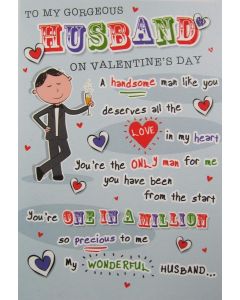 TO MY GORGEOUS
HUSBAND
ON VALENTINE'S DAY
A handsome man like you
deserves all the
LOVE in my heart
You're the ONLY man for me
you have been
from the start
You're ONE IN A MILLION
so precious to me
My WONDERFUL HUSBAND...